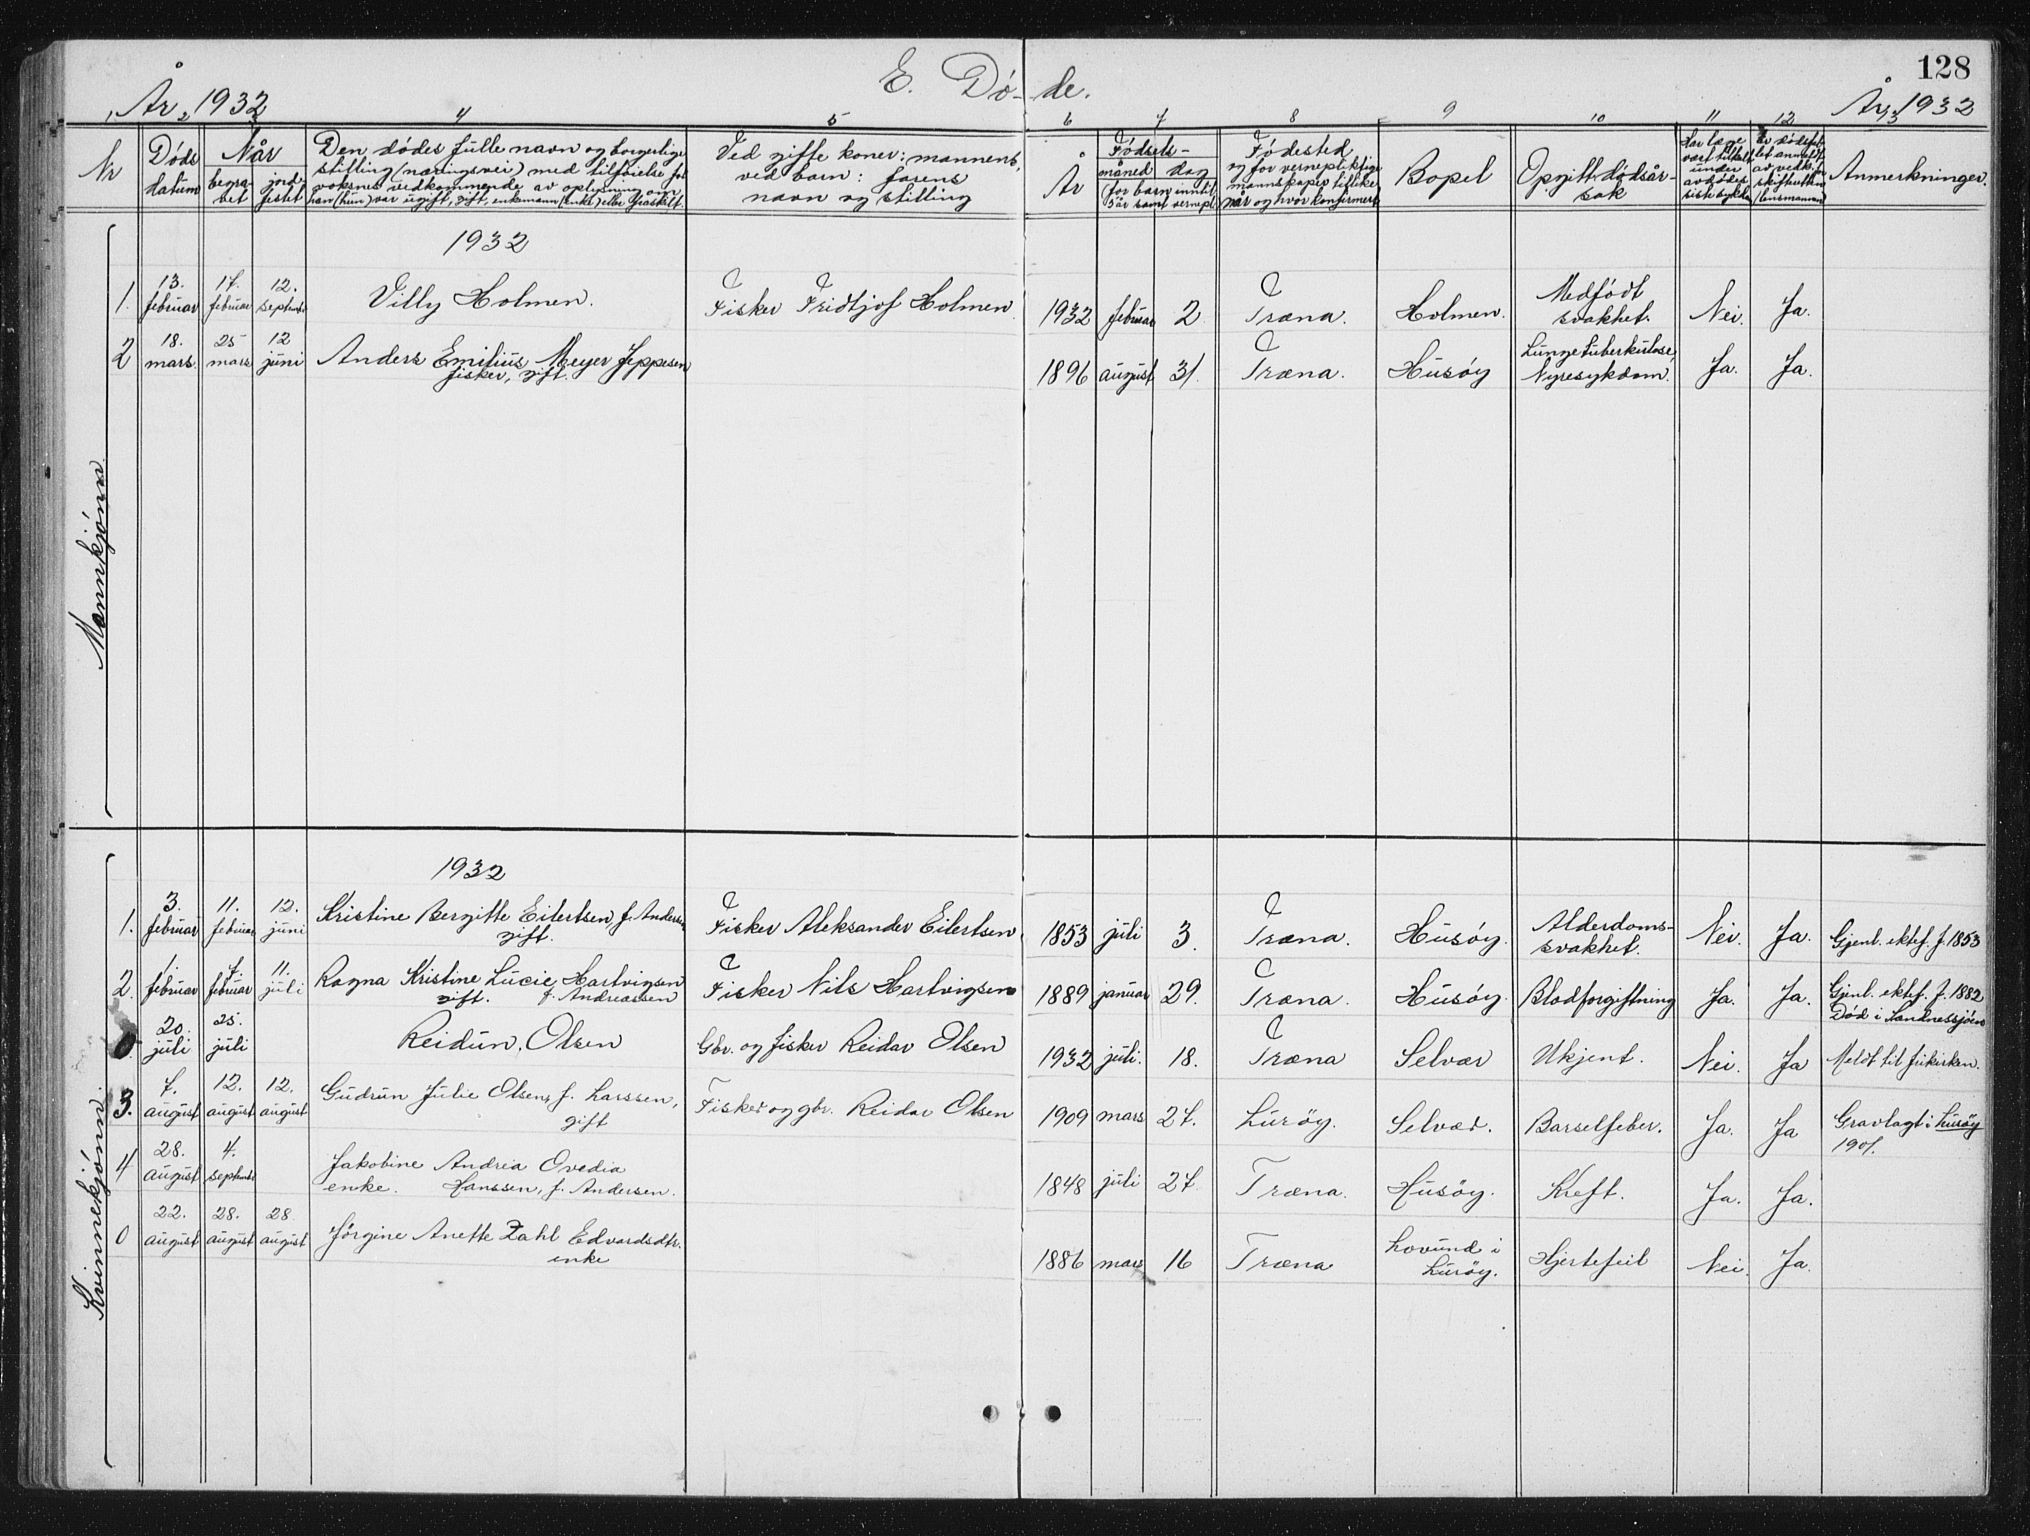 128
E. Dö-de.
År 1932
År 1932
1 2 3 4 5 6 7 8 9 10 11 12 13
Nr
Döds datum
Når
begra bet
jord festet
Den dödes fulle navn og borgerlige
stilling (næringsvei) med tilföielse for
voksnes vedkommende av oplysning om
han (hun) var ugift, gift, enkemann (enke) eller fraskilt.
Ved gifte koner: mannens,
ved barn: farens
navn og stilling
År
Födsels-
måned dag
(for barn inntil
5 år samt vernepl.
Födested
og for vernepliktige
mannskaper tillike
når og hvor konfirmert
Bopel
Opgitt dödsår-
sak
Har læge
vært tilkalt
under
avdödes
siste sykdom
Er dödsfal
let anmeldt
Anmerkninger.
Mannkjönn
1932
1. 13. februar 17. februar 12. septembr Villy Holmen. Fisker Fridtjof Holmen 1932 februar 2 Træna. Holmen. Medfödt svakhet. Nei. Ja.
2 18. mars 25 mars 12 juni Anders Emilius Meyer Jeppesen
fisker, gift. 1896 august 31. Træna. Husöy Lungetuberkulose, Nyresykdom. Ja. Ja.
Kvinnekjönn
1932
1. 3. februar 11. februar 12. juni Kristine Bergitte Eilertsen, f. Andersen
gift. Fisker Aleksander Eilertsen 1853 juli 3. Træna. Husöy. Alderdoms-svakhet. Nei. Ja. Gjenl. ektef. f. 1853
2. 1. februar 7. februar 11. juli Ragna Kristine Lucie Hartvigsen
gift. f. Andreassen Fisker Nils Hartvigsen 1889 januar 29. Træna. Husöy. Blodforgiftning Ja. Ja. Gjenl. ektef. f. 1882
Död i Sandnessjöen
0 20. juli 25. juli Reidun, Olsen Gbr. og fisker Reidar Olsen 1932 juli. 18. Træna Selvær Ukjent. Nei. Ja Meldt til frikirken.
3. 7. august 12. august 12. august Gudrun Julie Olsen, f. Larssen,
gift Fisker og gbr. Reidar Olsen 1909 mars 27. Luröy. Selvær. Barselfeber. Ja. Ja Gravlagt i Luröy
1907.
4 28. august 4. septembr Jakobine Andrea Ovedia
enke. Hanssen, f. Andersen. 1848 juli 27. Træna. Husöy. Kreft. Ja. Ja.
0 22. august 28. august 28. august Jörgine Anette Zahl Edvardsdtr.
enke 1886 mars 16 Træna Lovund i
Luröy. Hjertefeil Nei. Ja.